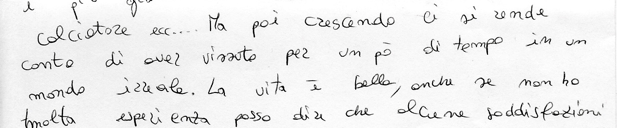 calciatore ecc.... Ma poi crescendo ci si rende
conto di aver vissuto per un pò di tempo in un
mondo irreale. La vita è bella, anche se non ho
molta esperienza posso dire che alcune soddisfazioni